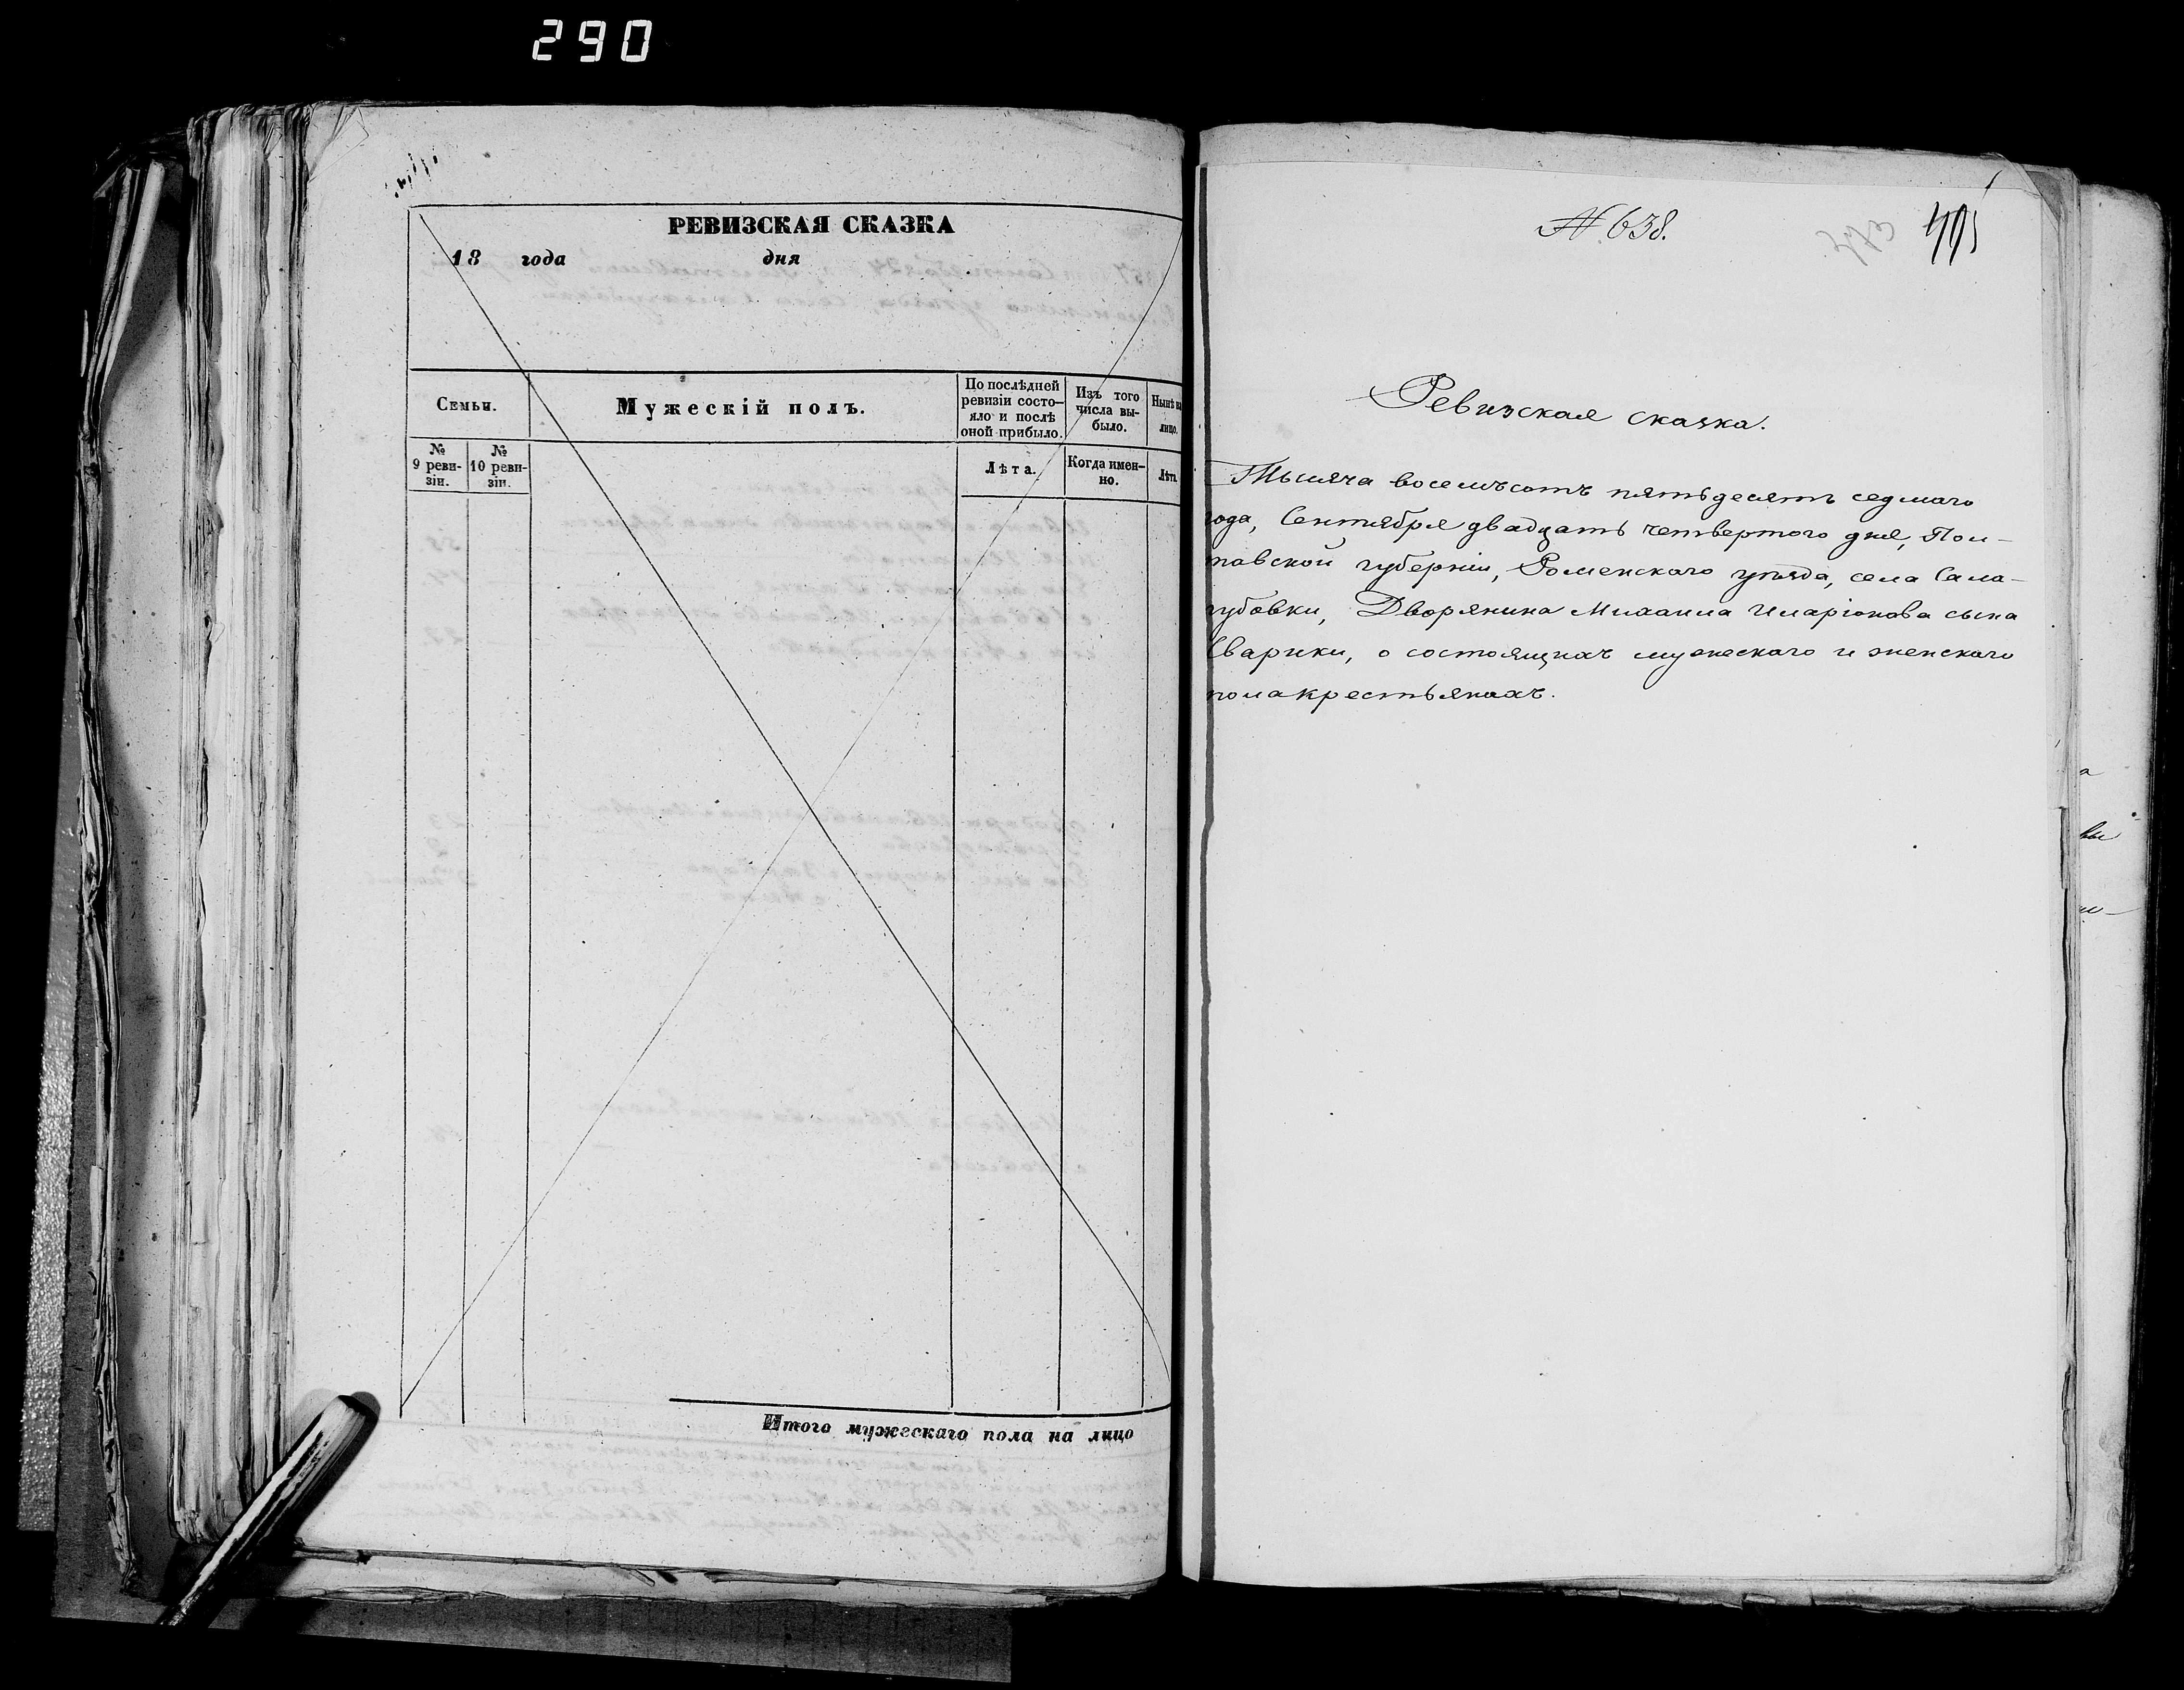 290
РЕВИЗСКАЯ СКАЗКА
18 года дня
Семьи.
Мужескій полъ.
По послѣдней ревизіи состо-
яло и послѣ оной прибыло.
Изъ того числа вы-
было.
Нынѣ на лицо.
№ 9 реви-
зіи.
№ 10 реви-
зіи.
Лѣта.
Когда имен-
но.
Лѣта
Итого мужескаго пола на лицо
№ 638.
Ревизская сказка.
Тысяча восемьсотъ пятьдесятъ седмаго
года, Сентября двадцать четвертого дня, Пол-
тавской губерніи, Роменского уѣзда, села Сала-
губовки, Дворянина Михаила Иларіонова сына
Сварики, о состоящихъ мужеского и женского
пола крестьянахъ.